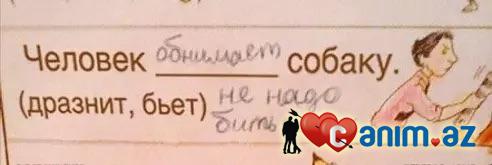 Человек обнимает собаку.
(дразнит, бьет) не надо
бить
canim.az